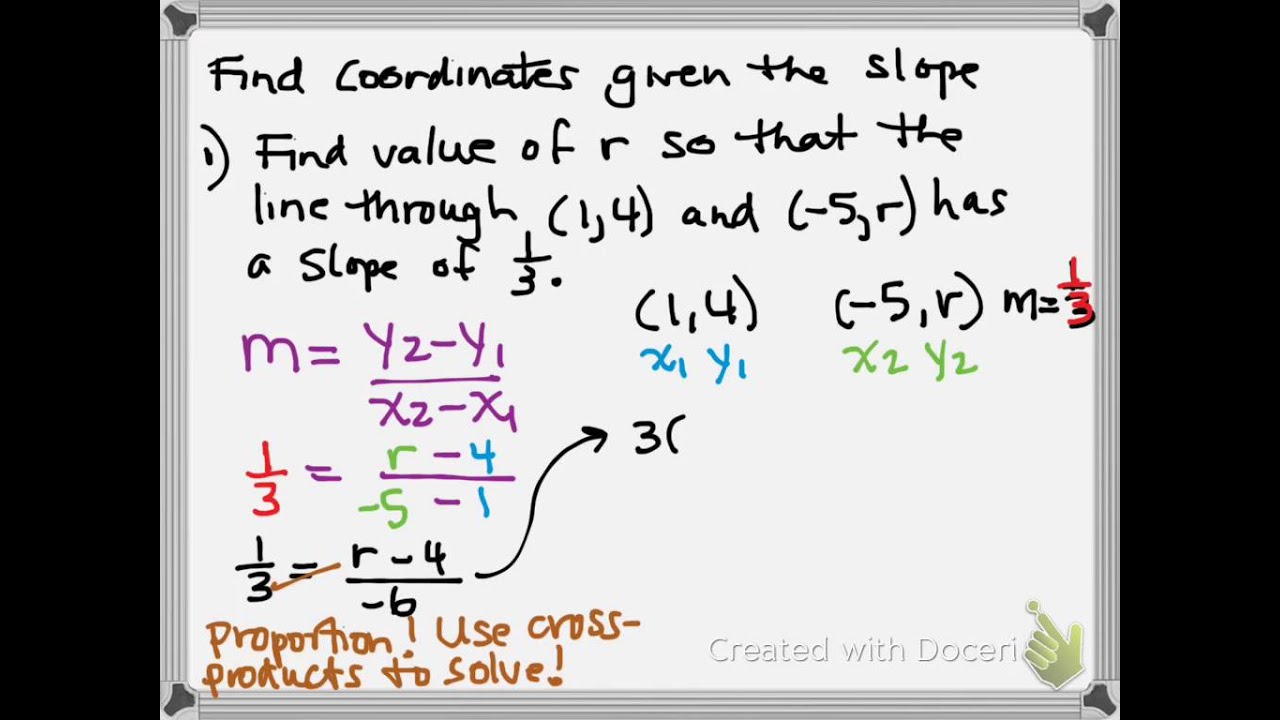 Find coordinates given the slope
1) Find value of r so that the
line through (1,4) and (-5,r) has
a slope of 1/3.
(1,4) (-5,r) m=1/3
x1 y1 x2 y2
m= y2-y1 / x2-x1
3(
1/3 = r-4 / -5-1
1/3 = r-4 / -6
Proportion! Use cross-
products to solve!
Created with Doceri